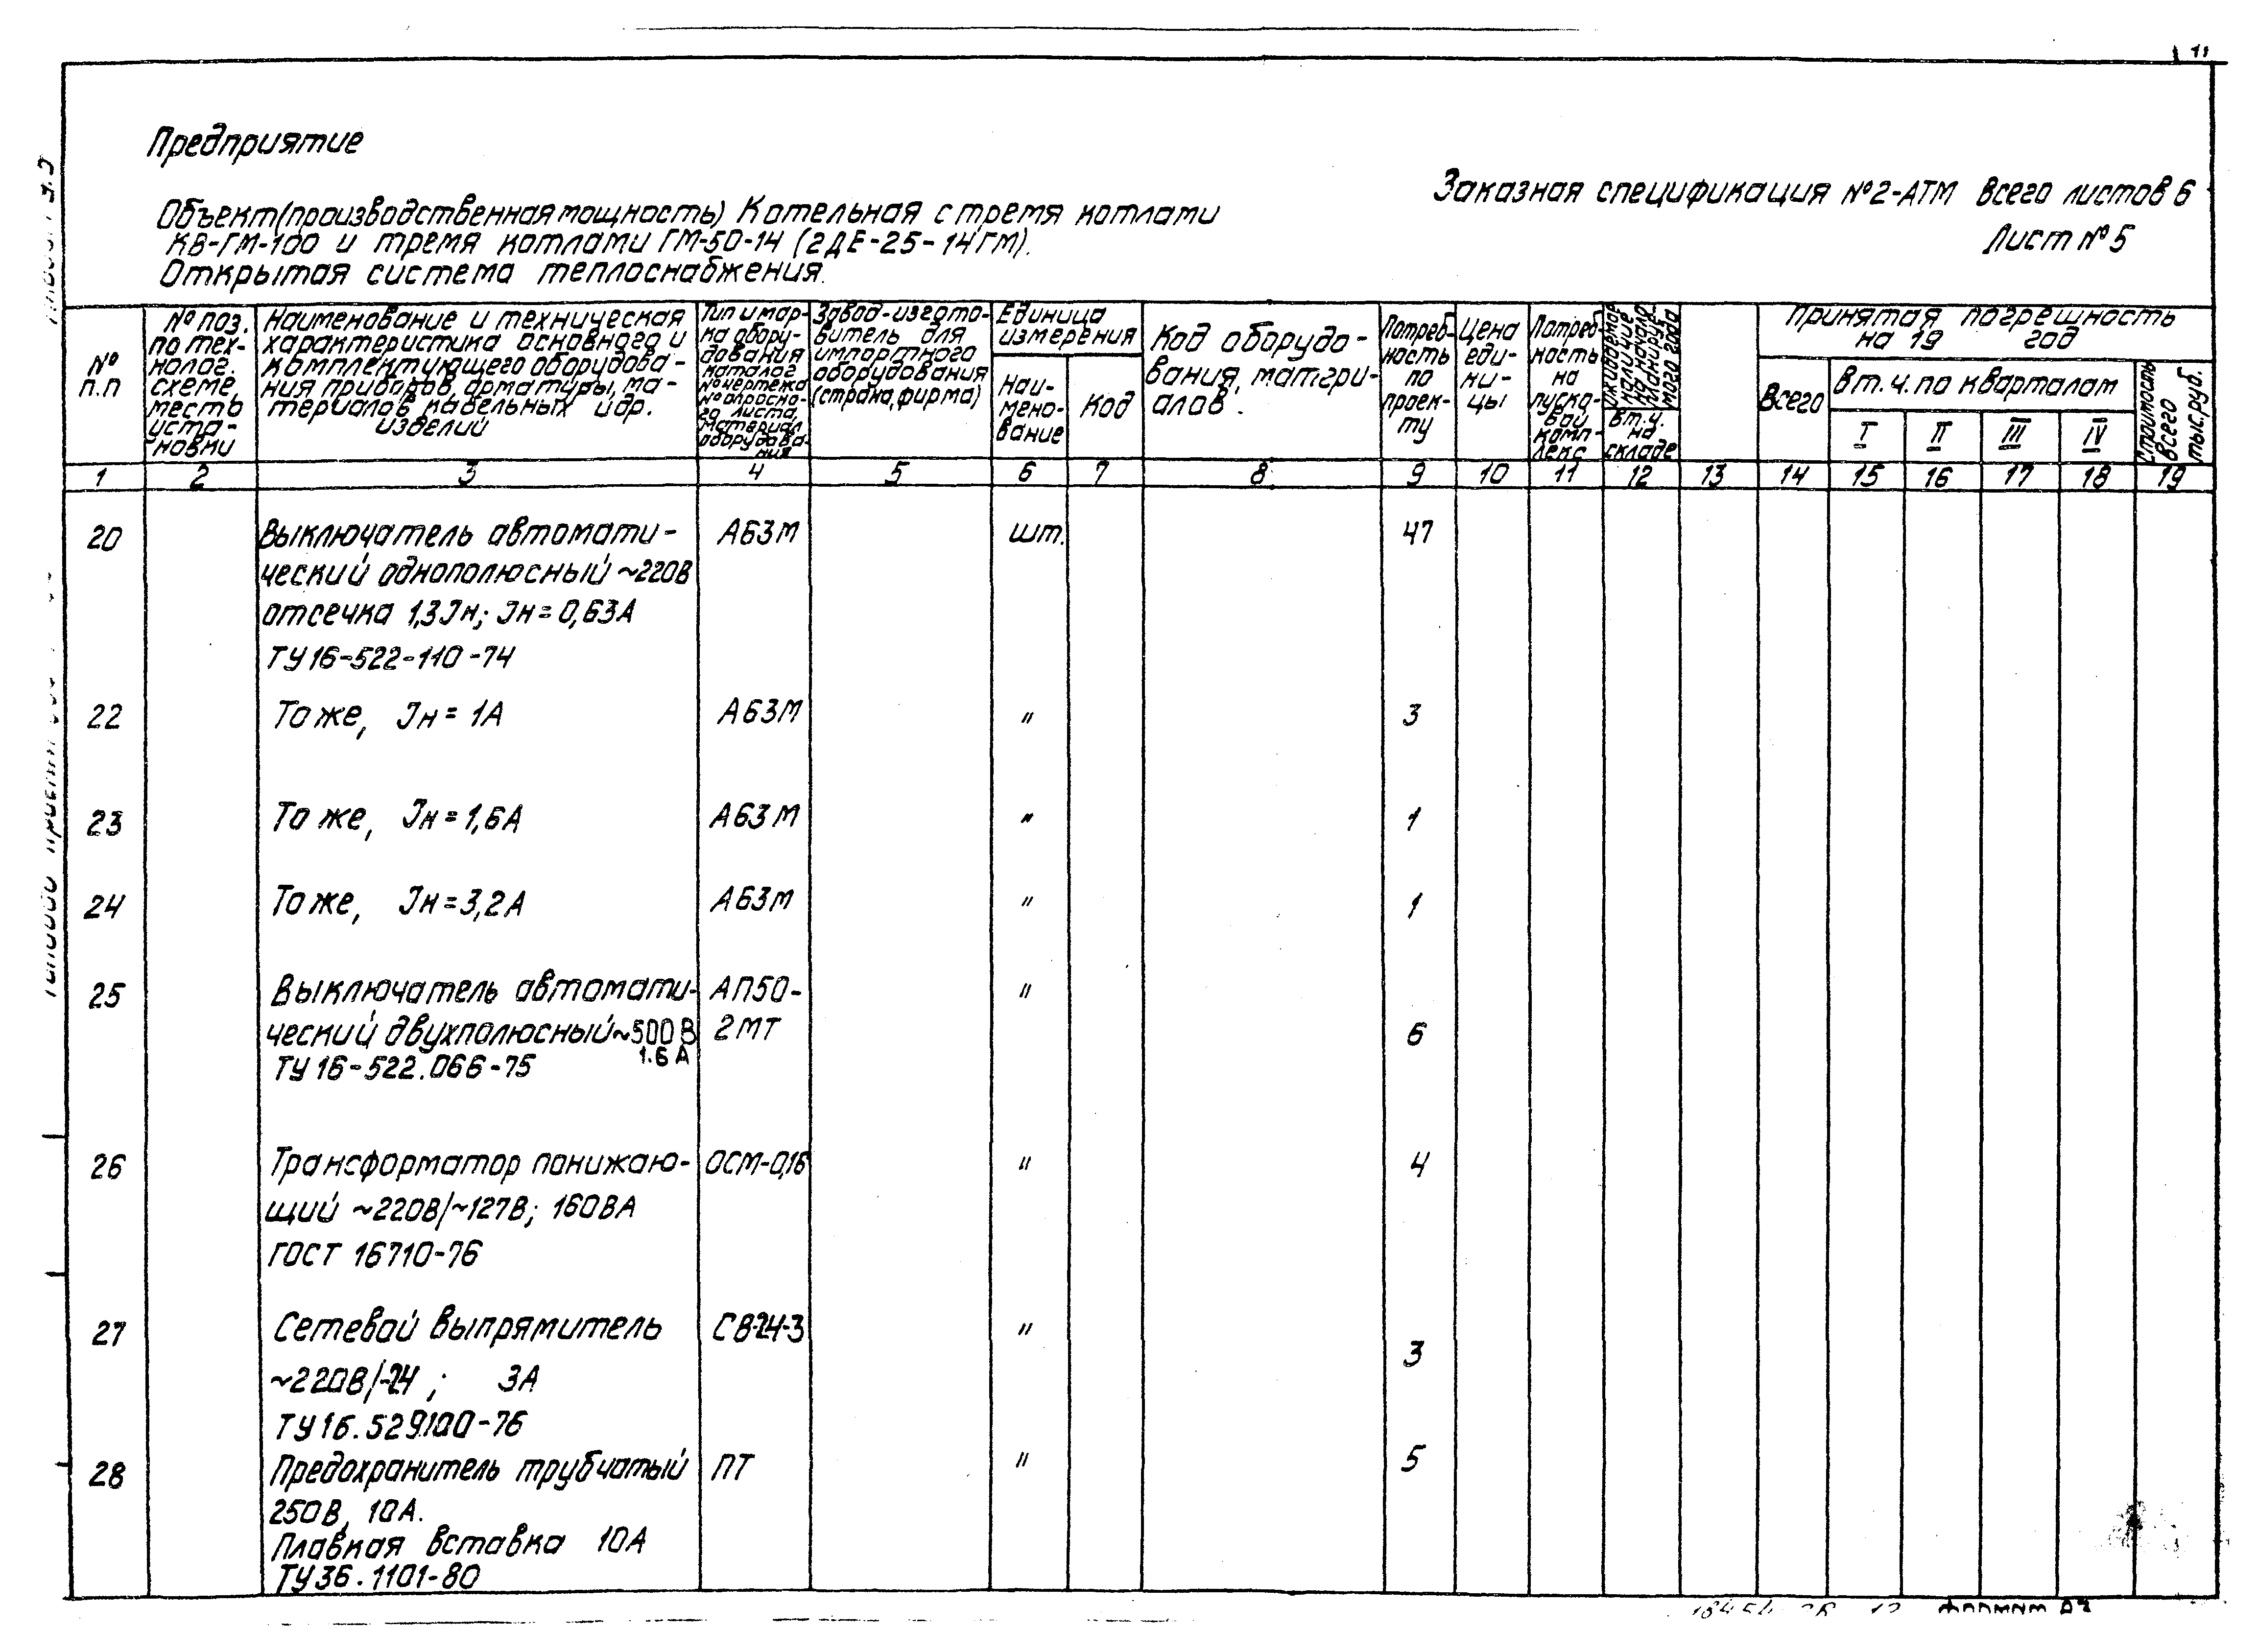 11
Предприятие
Заказная спецификация №2-АТМ Всего листов 6
Лист №5
Объект(производственная мощность) Котельная с тремя котлами
КВ-ГМ-100 и тремя котлами ГМ-50-14 (2ДЕ-25-14ГМ).
Открытая система теплоснабжения.
№
п.п
№ поз.
по тех-
нолог.
схеме,
месть
уста-
новки
Наименование и техническая
характеристика основного и
комплектующего оборудова-
ния приборов, арматуры, ма-
териалов кабельных и др.
изделий
Тип и мар-
ка обору-
дования
каталог
№ чертежа
№ опросно-
го листа,
материал
оборудова-
ния
Завод-изгото-
витель для
импортного
оборудования
(страна, фирма)
Единица
измерения
Наи-
мено-
вание
Код
Код оборудо-
вания, матери-
алов.
Потреб-
ность
по
проек-
ту
Цена
еди-
ни-
цы
Потреб-
ность
на
пуско-
вой
комп-
лекс
Ожидаемое
наличие
на начало
планируе-
мого года
вт.ч.
на
складе
Принятая погрешность
на 19 год
Всего
вт. ч. по кварталам
I II III IV
Стоимость
всего
тыс.руб.
1 2 3 4 5 6 7 8 9 10 11 12 13 14 15 16 17 18 19
20 Выключатель автомати- А63М шт. 47
ческий однополюсный ~220В
отсечка 1,3Jн; Jн=0,63А
ТУ16-522-110-74
22 То же, Jн = 1А А63М " 3
23 То же, Jн = 1,6А А63М " 1
24 То же, Jн=3,2А А63М " 1
25 Выключатель автомати- АП50- "
ческий двухполюсный~500В 2МТ 6
1.6 А
ТУ16-522.066-75
26 Трансформатор понижаю- ОСМ-0,16 " 4
щий ~220В/~127В; 160ВА
ГОСТ 16710-76
27 Сетевой выпрямитель СВ-24-3 "
~220В/-24 ; 3А 3
ТУ16.529.100-76
28 Предохранитель трубчатый ПТ " 5
250В, 10А.
Плавкая вставка 10А
ТУ36.1101-80
Формат